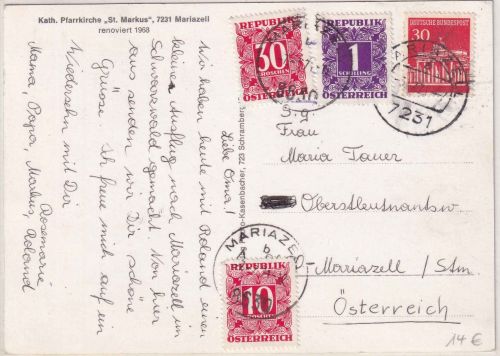 Kath. Pfarrkirche „St. Markus", 7231 Mariazell
renoviert 1968
Liebe Oma!
Wir haben heute mit Roland einen
kleinen Ausflug nach Mariazell im
Schwarzwald gemacht. Von hier
aus senden wir Dir schöne
Grüsse. Ich freue mich auf ein
Wiedersehn mit Dir
Rosemarie
Mama, Papa, Markus, Roland
-Kasenbacher, 723 Schramberg
REPUBLIK
30
GROSCHEN
ÖSTERREICH
REPUBLIK
1
SCHILLING
ÖSTERREICH
DEUTSCHE BUNDESPOST
30
7231
S.g.
Frau
Maria Tauer
Oberstleutnantsw.
-Mariazell / Stm.
Österreich
MARIAZELL
REPUBLIK
10
ÖSTERREICH
14 €